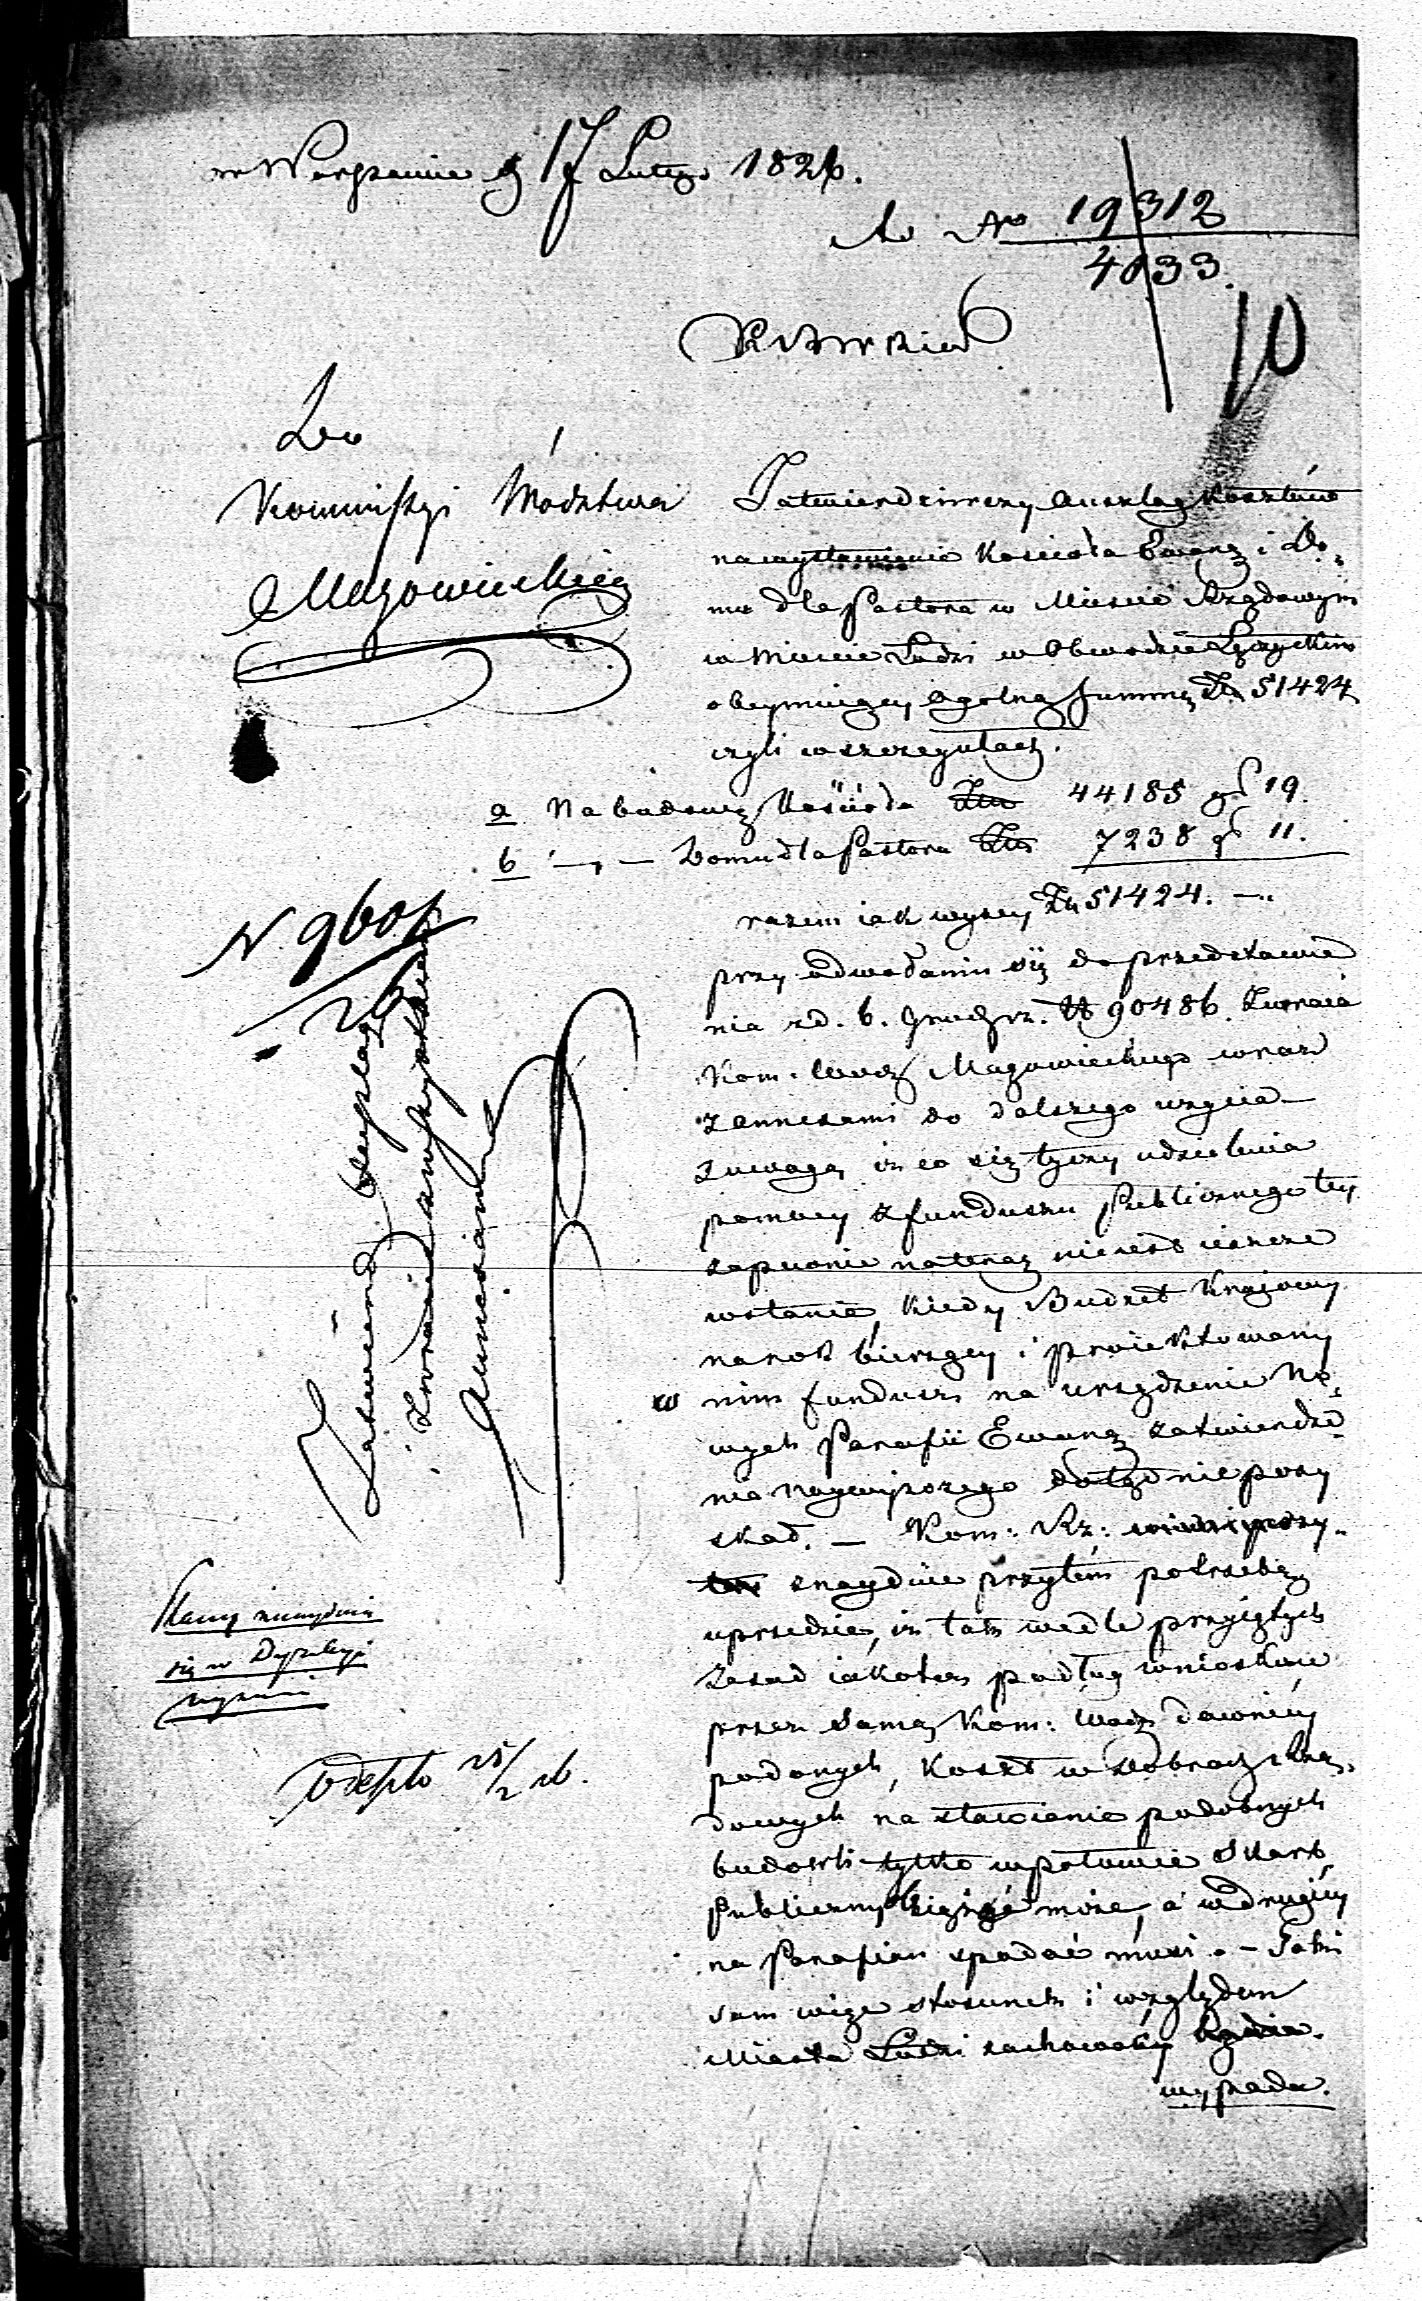 w Warszawie d 17 Lutego 1826.
Ad No 19312
4033.
10
Do
Kommissyi Wdztwa
Mazowieckiego
Zatwierdziwszy Anszlag kosztów
na wystawienie Kościoła Ewang i Do-
mu dla Pastora w Mieście Rządowym
w Mieście Łodzi w Obwodzie Łęczyckim
obeymuiący ogólną Summę Zł 51424
czyli w szczegułach.
a Na budowę Kościoła Złp 44185 gr 19.
b — „ — Domu dla Pastora Złp 7238 gr 11.
razem iak wyzey Zł 51424. —
przy odwołaniu się do przedstawie
nia z d. 6. Grud r. z. N 90486. Zwraca
Kom: Wdz Mazowieckiego wraz
z annexami do dalszego użycia —
z uwagą iż co się tyczy udzielenia
pomocy z funduszu Publicznego tey
zapewnić na teraz nie iest ieszcze
w stanie, kiedy Budżet Kraiowy
na rok bieżący i proiektowany
w nim fundusz na urządzenie No-
wych Parafii Ewang zatwierdze-
nia Naywyższego dotąd nie pozy
skał. — Kom: Rz:
znayduie przytém potrzebę
uprzedzić, iż tak wedle przyiętych
zasad iakoteż podług wniosków
przez samą Kom: Wdz dawniey
podanych, koszt w dobrach Rzą-
dowych na stawianie podobnych
budowli tylko w połowie Skarb
Publiczny może, a w drugiey
na Parafian spadać musi. — Takiż
sam więc stosunek i względem
Miasta Łodzi zachowany
wypada.
N 9601
26
Zatwierdz Anszlag
Zwraca
Annexami
się w